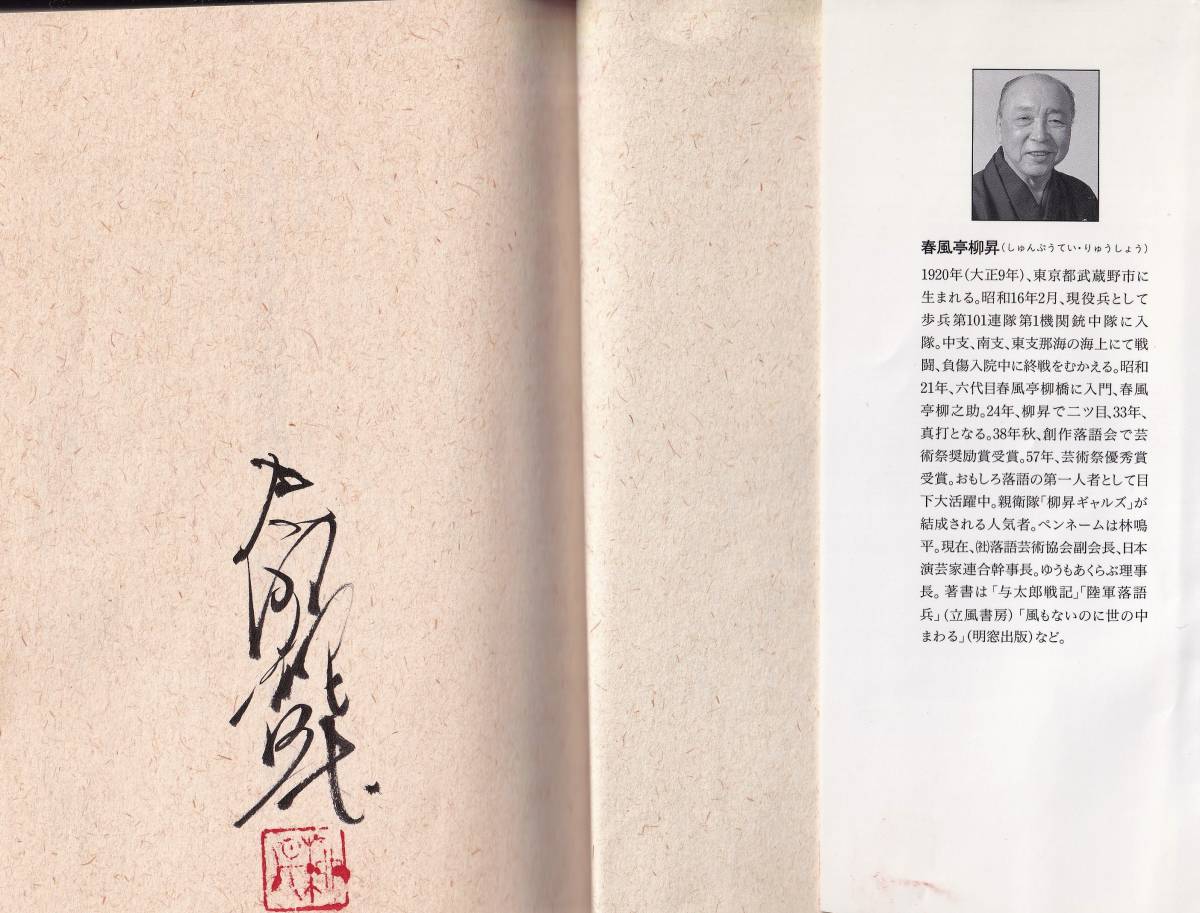 春風亭柳昇(しゅんぷうてい・りゅうしょう)
1920年(大正9年)、東京都武蔵野市に
生まれる。昭和16年2月、現役兵として
歩兵第101連隊第1機関銃中隊に入
隊。中支、南支、東支那海の海上にて戦
闘、負傷入院中に終戦をむかえる。昭和
21年、六代目春風亭柳橋に入門、春風
亭柳之助。24年、柳昇で二ツ目、33年、
真打となる。38年秋、創作落語会で芸
術祭奨励賞受賞。57年、芸術祭優秀賞
受賞。おもしろ落語の第一人者として目
下大活躍中。親衛隊「柳昇ギャルズ」が
結成される人気者。ペンネームは林鳴
平。現在、㈳落語芸術協会副会長、日本
演芸家連合幹事長。ゆうもあくらぶ理事
長。著書は「与太郎戦記」「陸軍落語
兵」(立風書房)「風もないのに世の中
まわる」(明窓出版)など。